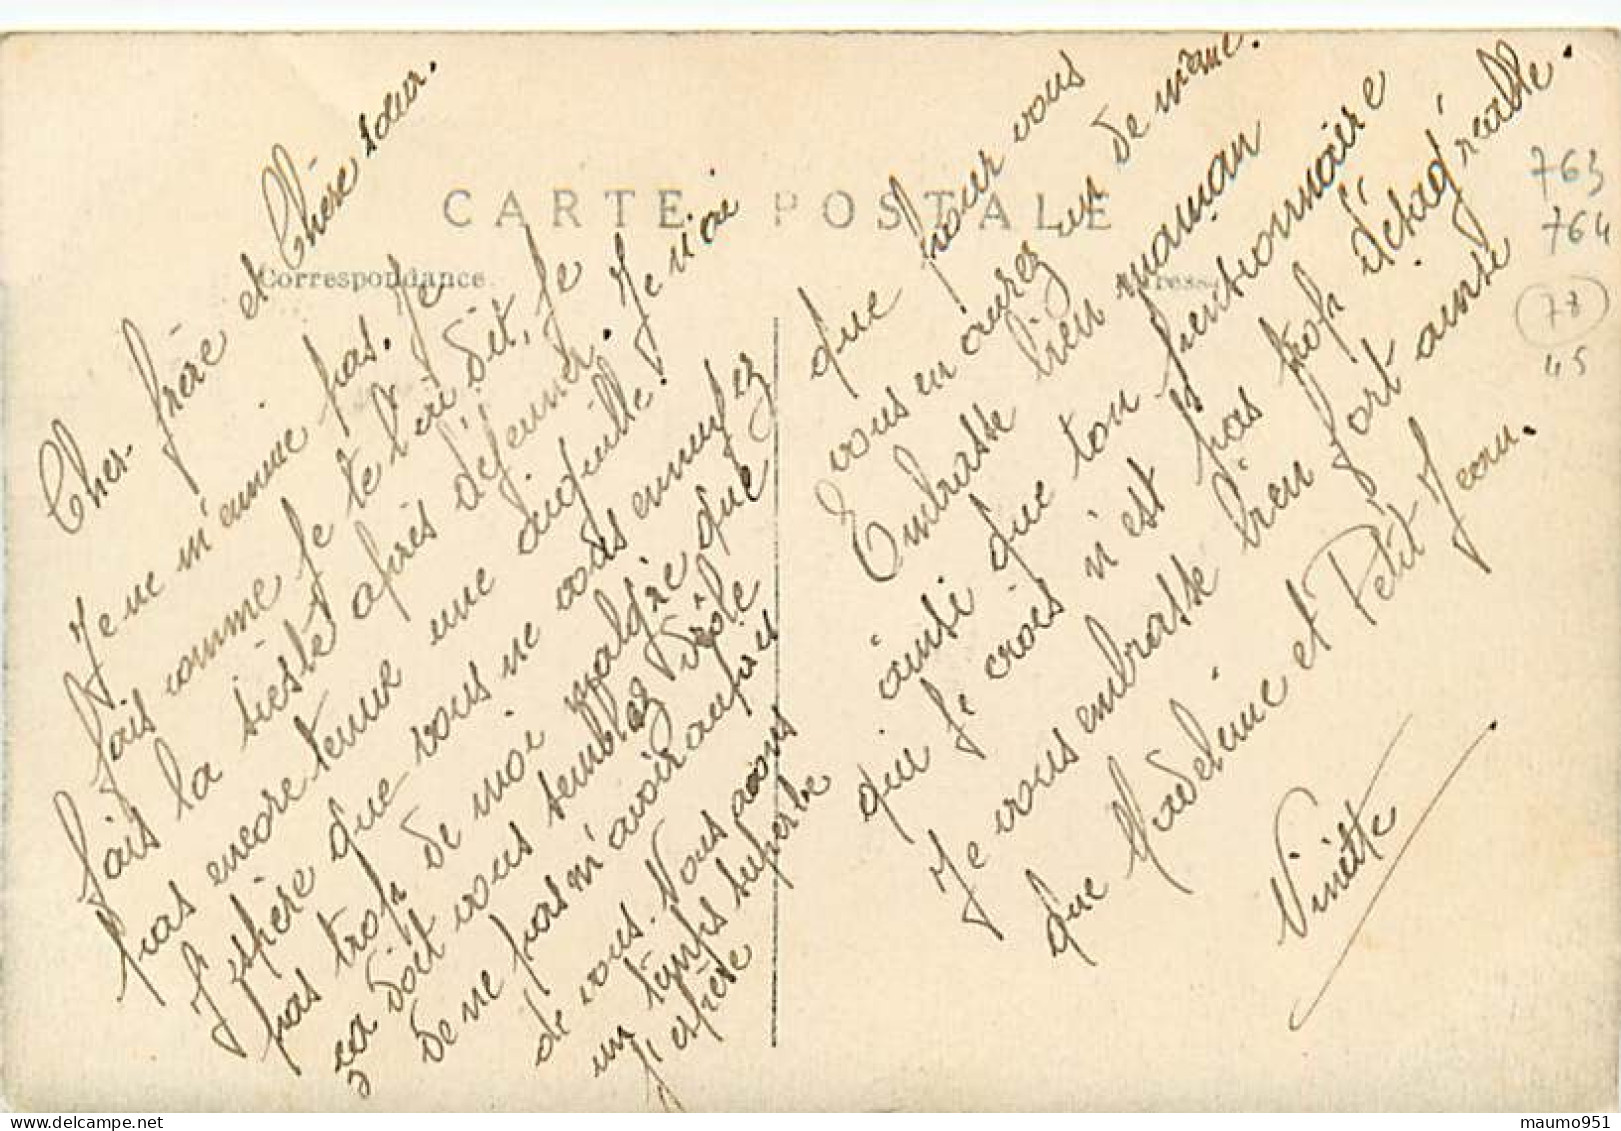 CARTE POSTALE
Correspondance
Cher frère et Chère sœur.
Je ne m'ennuie pas. Je
fais comme je te l'ai dit, je
fais la sieste après déjeuner. Je n'ai
pas encore tenue une aiguille.
J'espère que vous ne vous ennuyez
pas trop de moi malgré que
ça doit vous semblez drôle
de ne pas m'avoir auprès
de vous. Nous avons
un temps superbe
j'espère
que pour vous
vous en aurez un de même.
Embrasse bien maman
ainsi que ton pensionnaire
qui je crois n'est pas trop désagréable.
Je vous embrasse bien fort ainsi
que Madeleine et Petit Jean.
Ninette
763
764
78
45
delcampe.net
maumo951